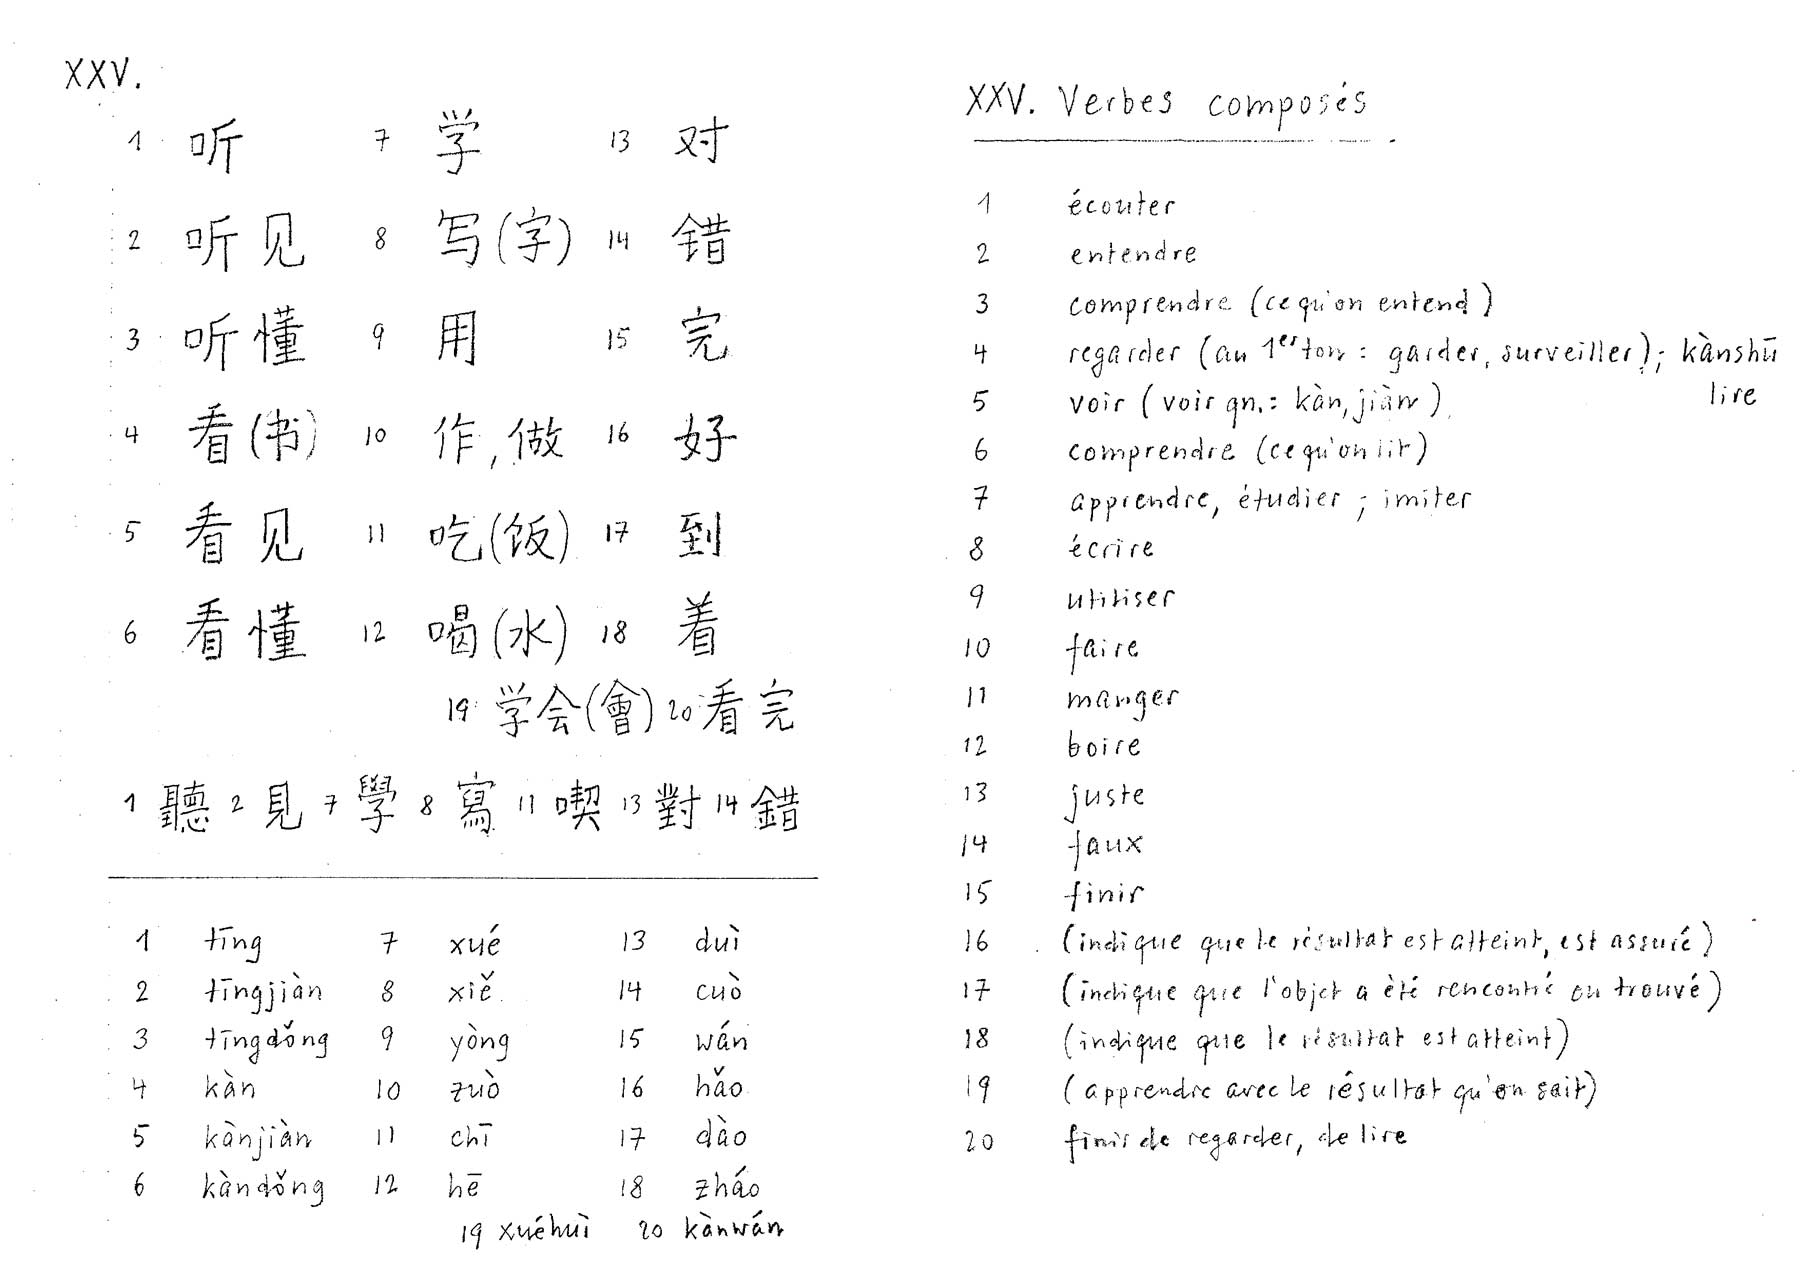 XXV.
1 听 7 学 13 对
2 听见 8 写(字) 14 错
3 听懂 9 用 15 完
4 看(书) 10 作,做 16 好
5 看见 11 吃(饭) 17 到
6 看懂 12 喝(水) 18 着
19 学会(會) 20 看完
1 聽 2 見 7 學 8 寫 11 喫 13 對 14 錯
1 tīng 7 xué 13 duì
2 tīngjiàn 8 xiě 14 cuò
3 tīngdǒng 9 yòng 15 wán
4 kàn 10 zuò 16 hǎo
5 kànjiàn 11 chī 17 dào
6 kàndǒng 12 hē 18 zháo
19 xuéhuì 20 kànwán
XXV. Verbes composés
1 écouter
2 entendre
3 comprendre (ce qu'on entend)
4 regarder (au 1er ton : garder, surveiller); kànshū
lire
5 voir (voir qn.: kàn, jiàn)
6 comprendre (ce qu'on lit)
7 apprendre, étudier ; imiter
8 écrire
9 utiliser
10 faire
11 manger
12 boire
13 juste
14 faux
15 finir
16 (indique que le résultat est atteint, est assuré)
17 (indique que l'objet a été rencontré ou trouvé)
18 (indique que le résultat est atteint)
19 (apprendre avec le résultat qu'on sait)
20 finir de regarder, de lire